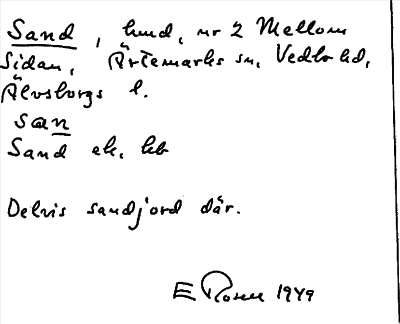 Sand, lund, nr 2 Mellom
Sidan, Ärtemarks sn, Vedbo hd,
Älvsborgs l.
san
Sand ek, hb
Delvis sandjord där.
E Rosen 1949